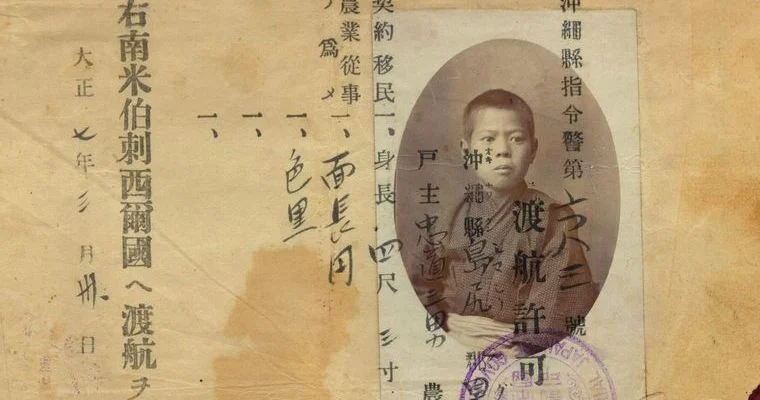 沖繩縣指令警第 號
渡航許可
沖繩縣島尻
戶主忠道三男 農
契約移民 一、身長 四尺三寸
農業從事 一、面長円
ノ爲メ
一、色黒
一、
一、
右南米伯剌西爾國へ渡航ヲ
大正七年三月卅日